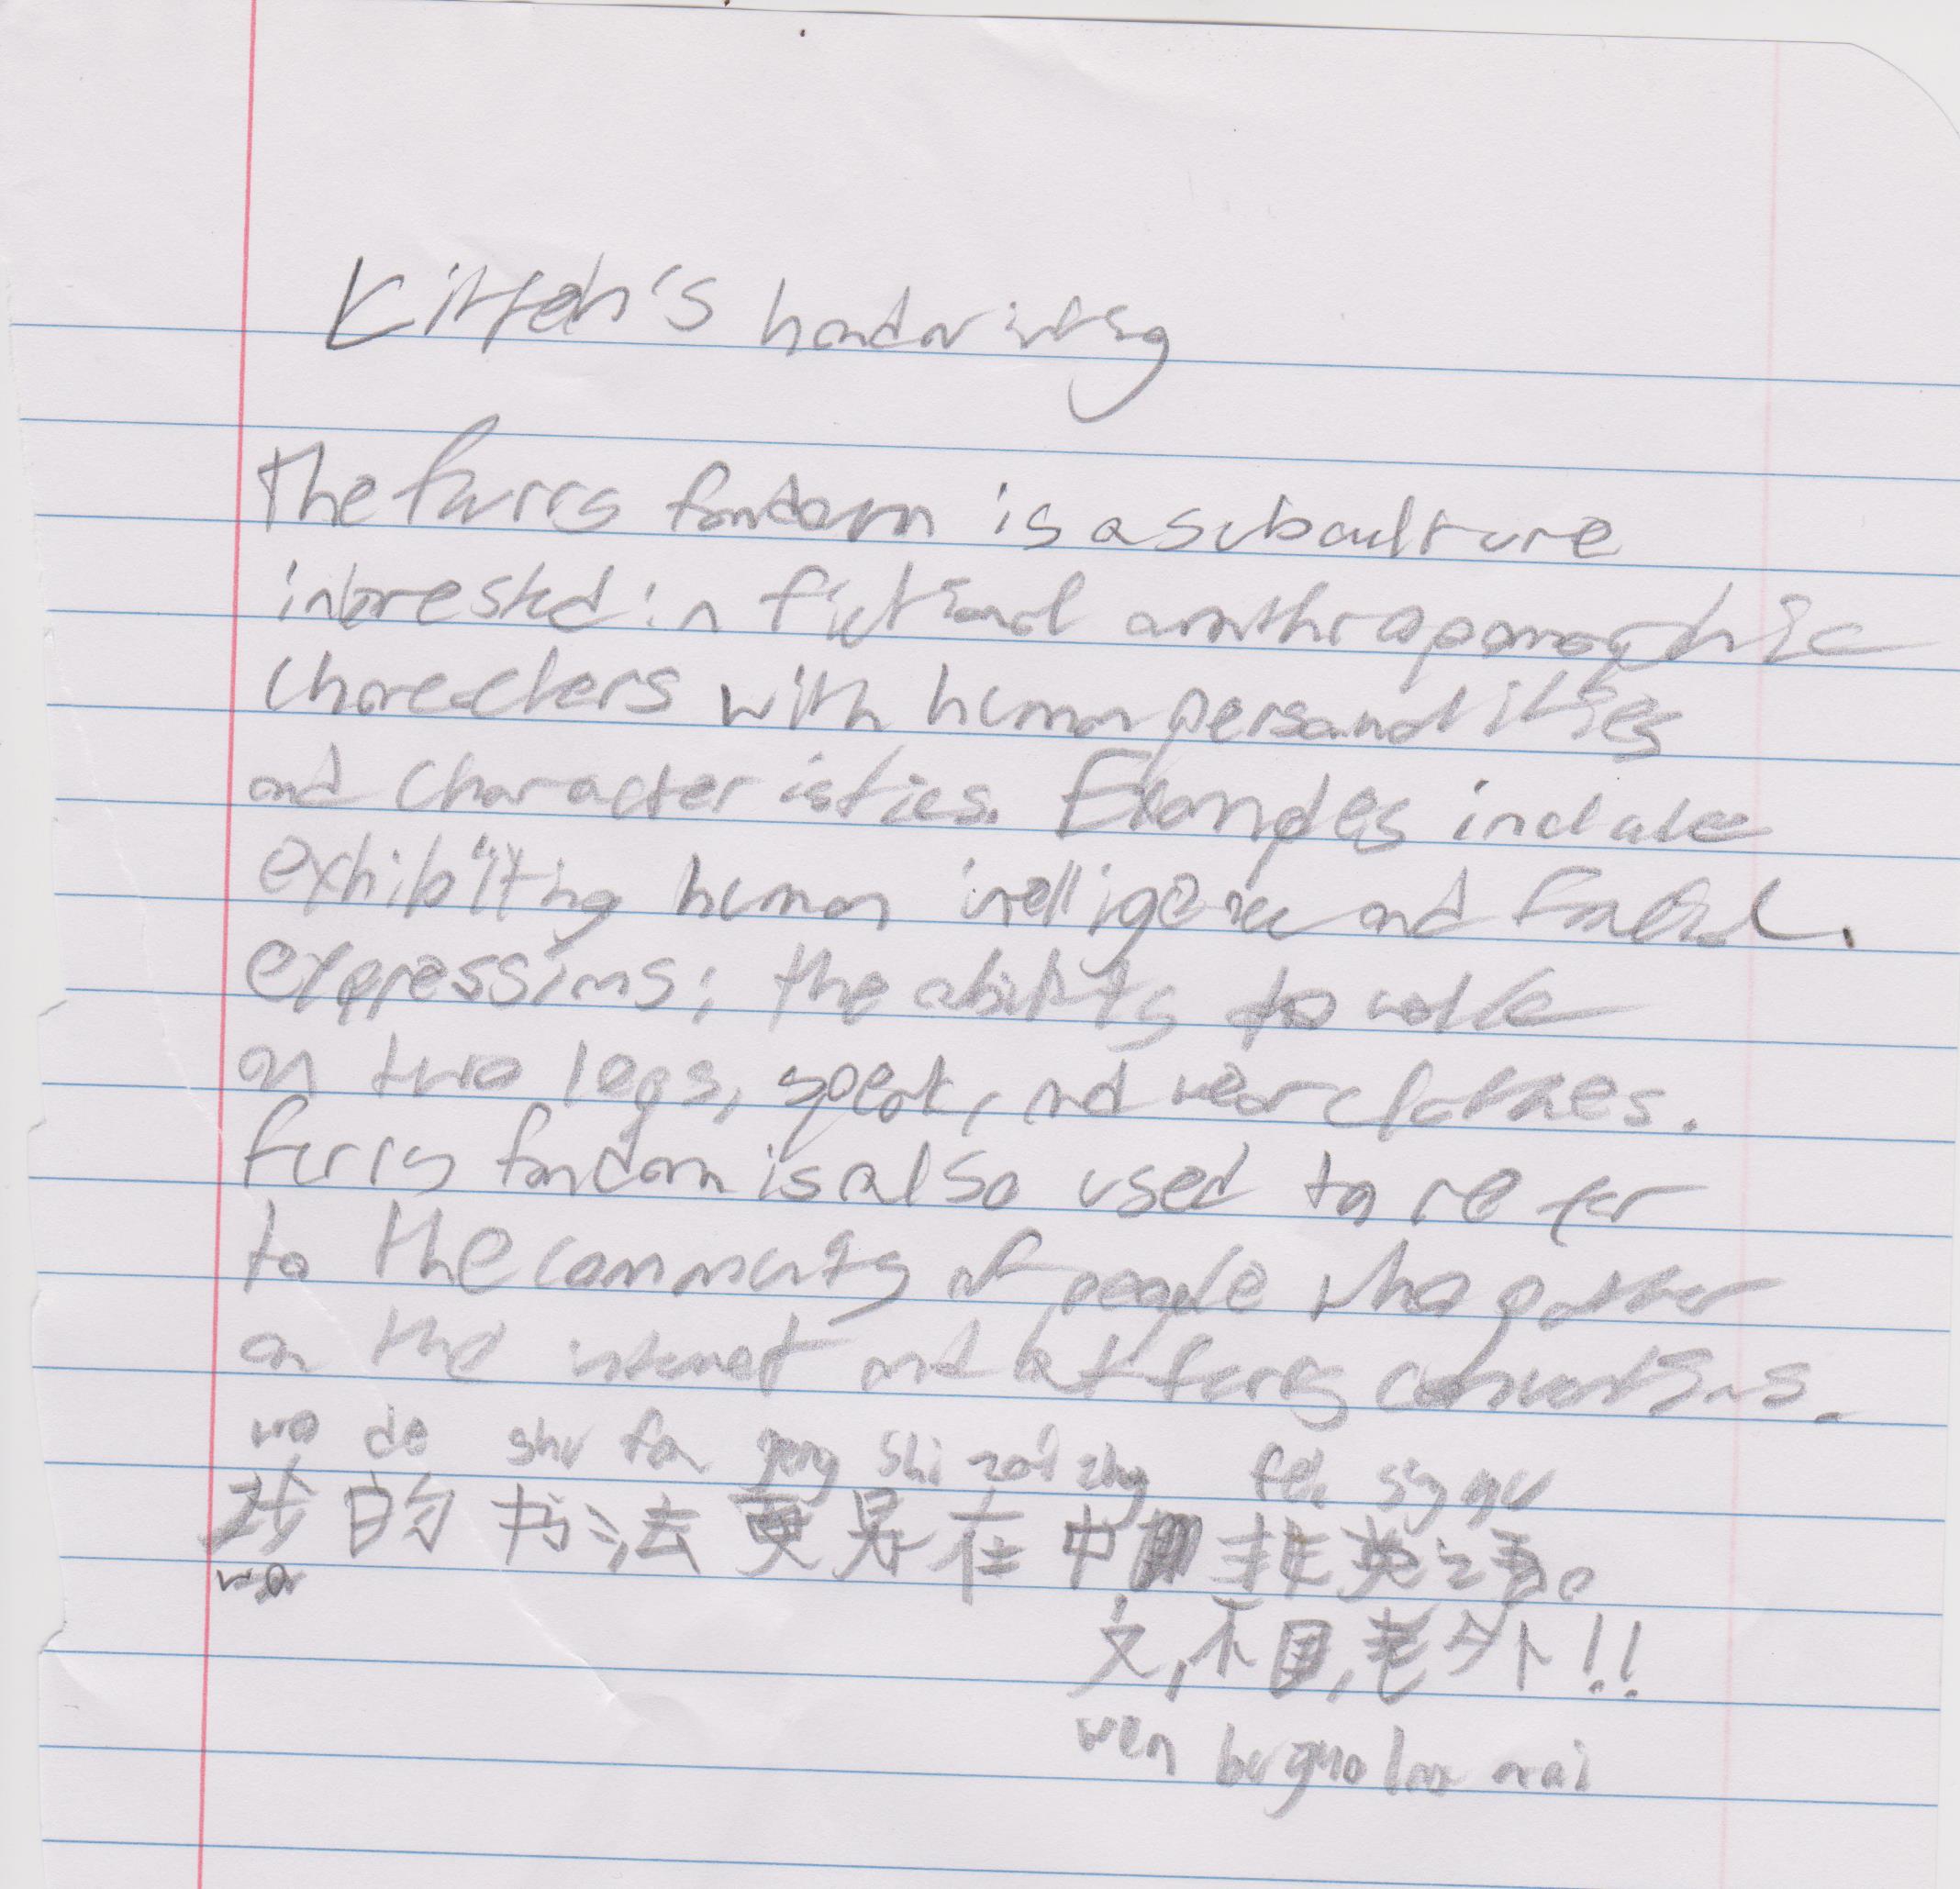 Kitteh's handwriting
The furry fandom is a subculture
interested in fictional anthropomorphic
characters with human personalities
and characteristics. Examples include
exhibiting human intelligence and facial
expressions; the ability to walk
on two legs, speak, and wear clothes.
furry fandom is also used to refer
to the community of people who gather
on the internet and at furry conventions.
wo de shu fa geng shi zai zhg fei yig yu
我的书法更是在中 非英语。
wo
文,不国,老外!!
wen bu guo lao wai